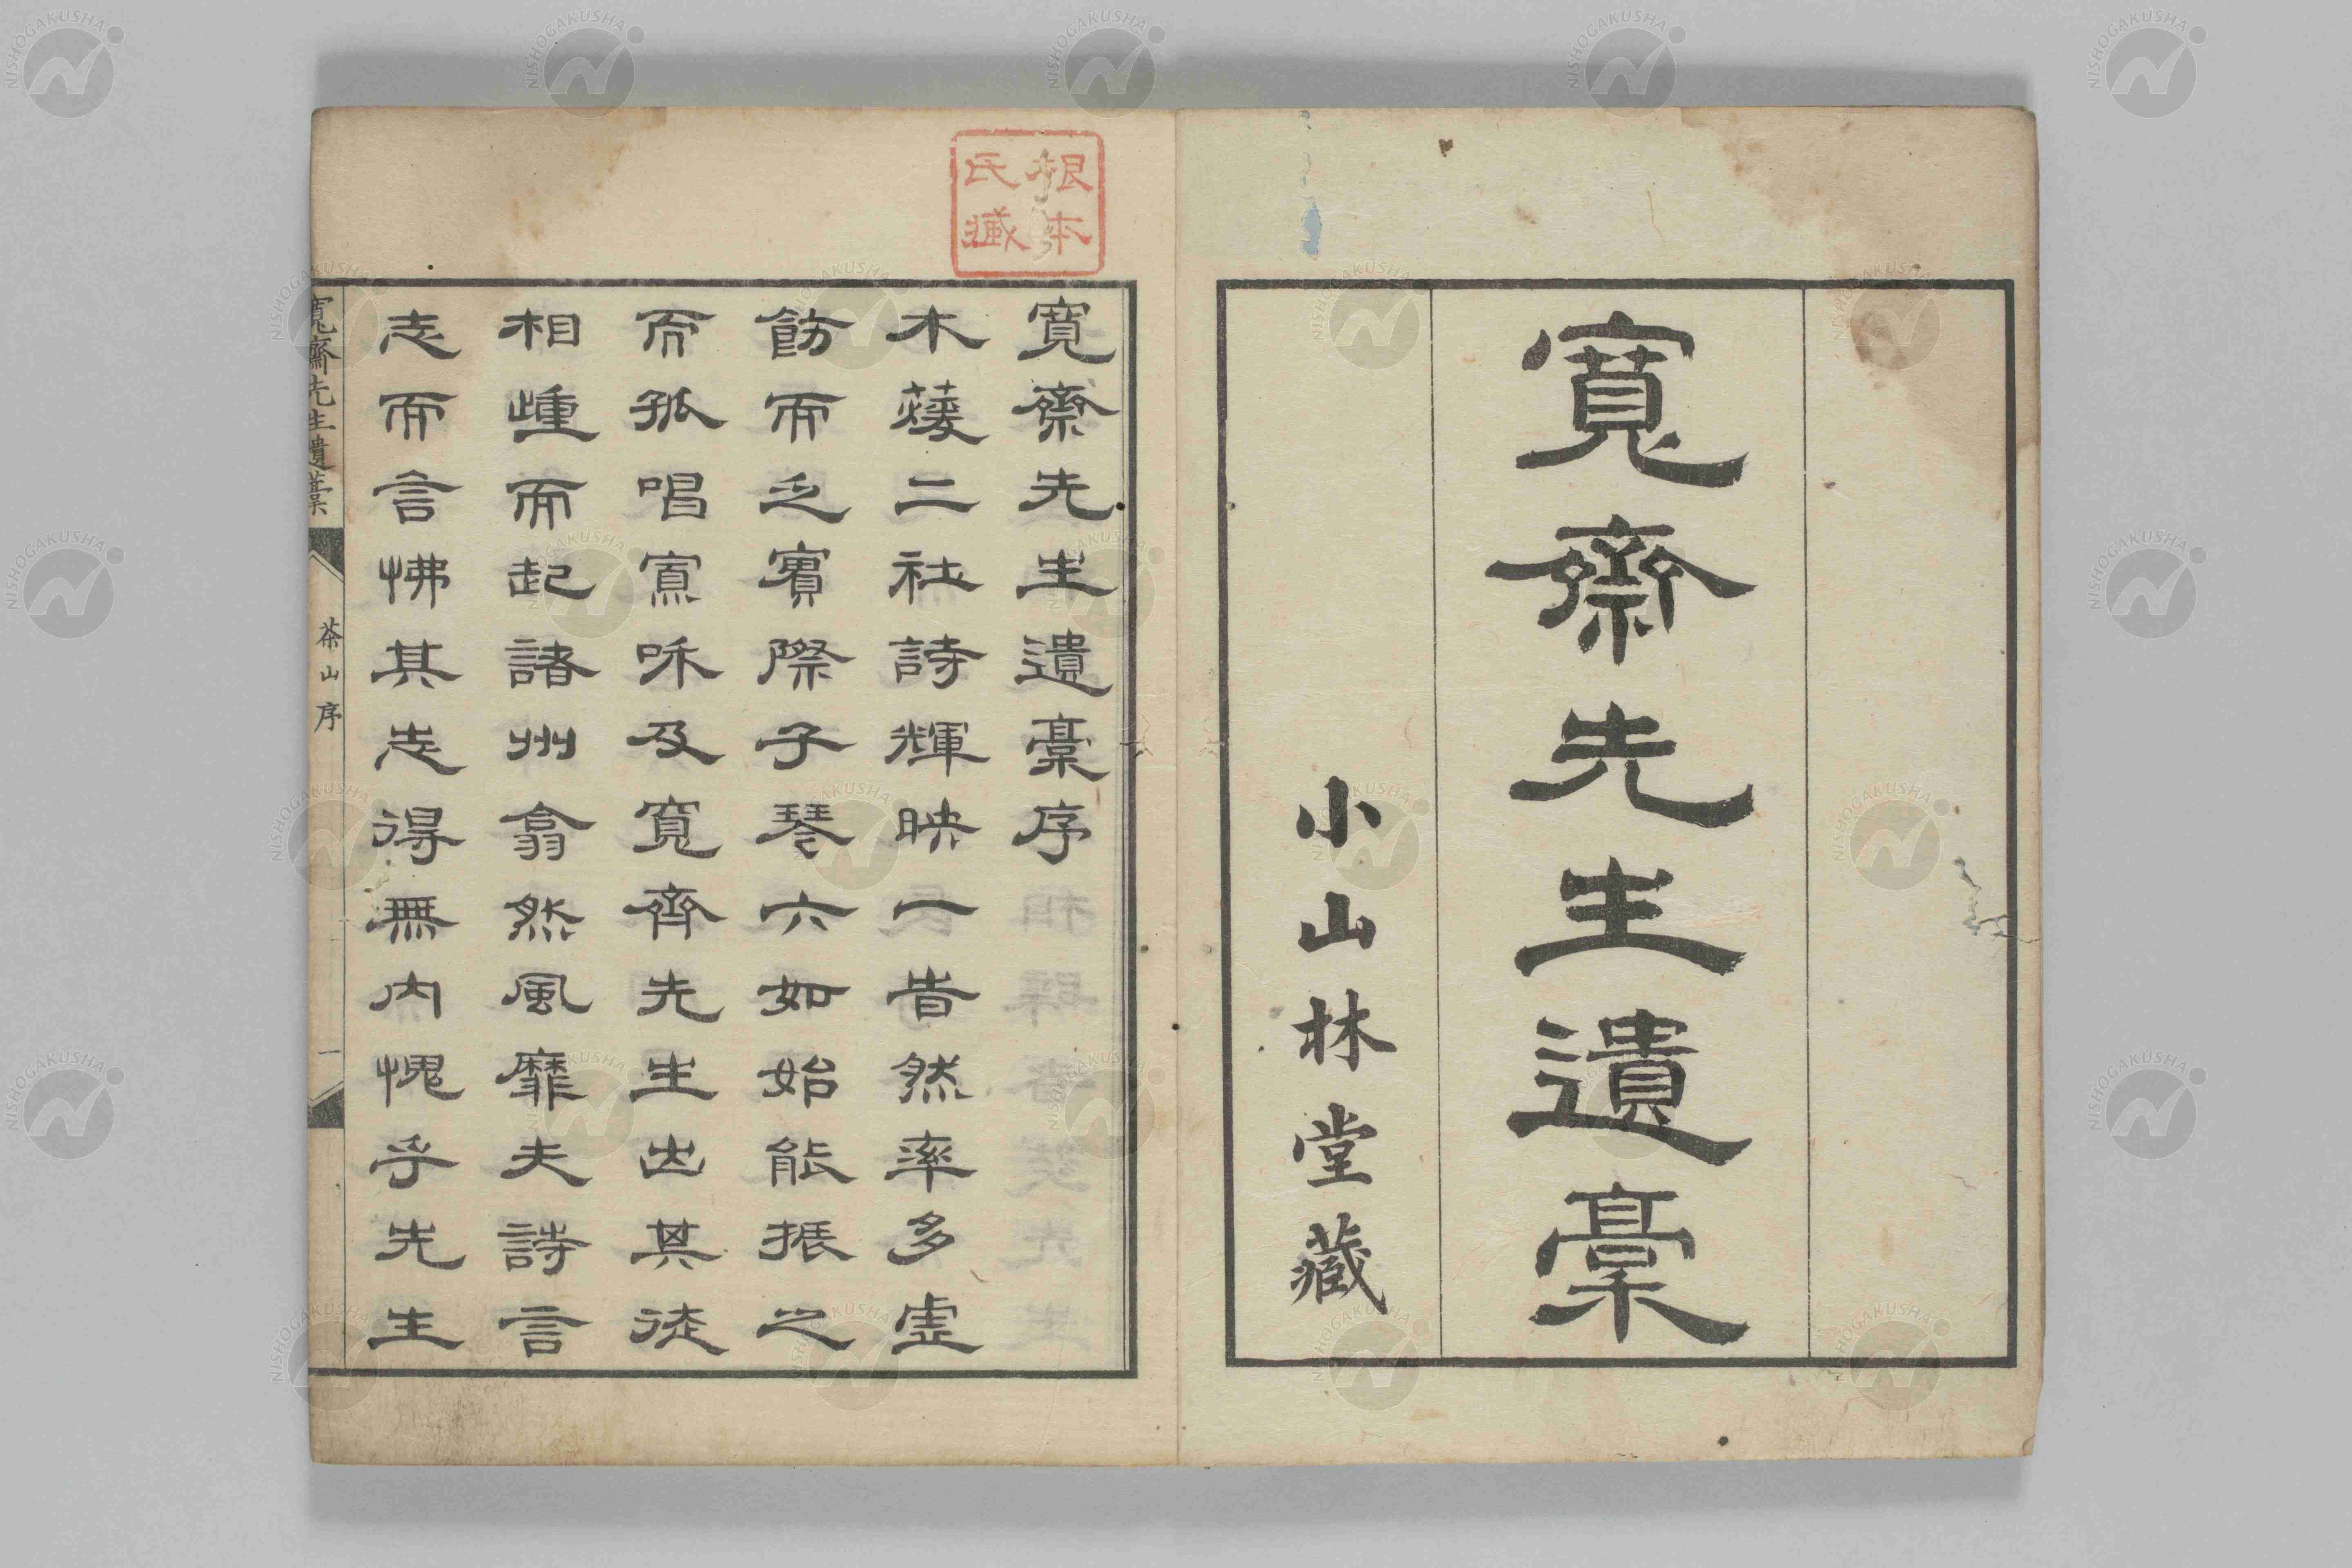 寬齋先生遺稾
小山林堂藏
根本
氏藏
寬齋先生遺稾序
木蘐二社詩輝映一旹然率多虛
飾而乏賔際子琴六如始能振之
而孤唱寡咊及寬齊先生出其徒
相踵而起諸州翕然風靡夫詩言
志而言怫其志得無內愧乎先生
寬齋先生遺稾　茶山序　一
NISHOGAKUSHA